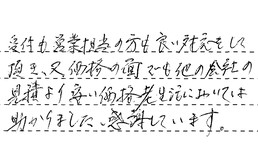 受付も営業担当の方も良い対応をして
頂き、又価格の面でも他の会社の
見積より安い価格老生活においては
助かりました、感謝しています。